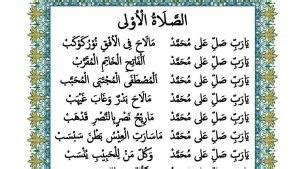 الصَّلَاةُ الْأُوْلَى
يَارَبِّ صَلِّ عَلَى مُحَمَّدْ مَالَاحَ فِى الْأُفْقِ نُوْرُ كَوْكَبْ
يَارَبِّ صَلِّ عَلَى مُحَمَّدْ اَلْفَاتِحِ الْخَاتِمِ الْمُقَرَّبْ
يَارَبِّ صَلِّ عَلَى مُحَمَّدْ اَلْمُصْطَفَى الْمُجْتَبَى الْمُحَبَّبْ
يَارَبِّ صَلِّ عَلَى مُحَمَّدْ مَالَاحَ بَدْرٌ وَغَابَ غَيْهَبْ
يَارَبِّ صَلِّ عَلَى مُحَمَّدْ مَارِيْحُ نَصْرٍ بِالنَّصْرِ قَدْهَبْ
يَارَبِّ صَلِّ عَلَى مُحَمَّدْ مَاسَارَتِ الْعِيْسُ بَطْنَ سَبْسَبْ
يَارَبِّ صَلِّ عَلَى مُحَمَّدْ وَكُلِّ مَنْ لِلْحَبِيْبِ يُنْسَبْ